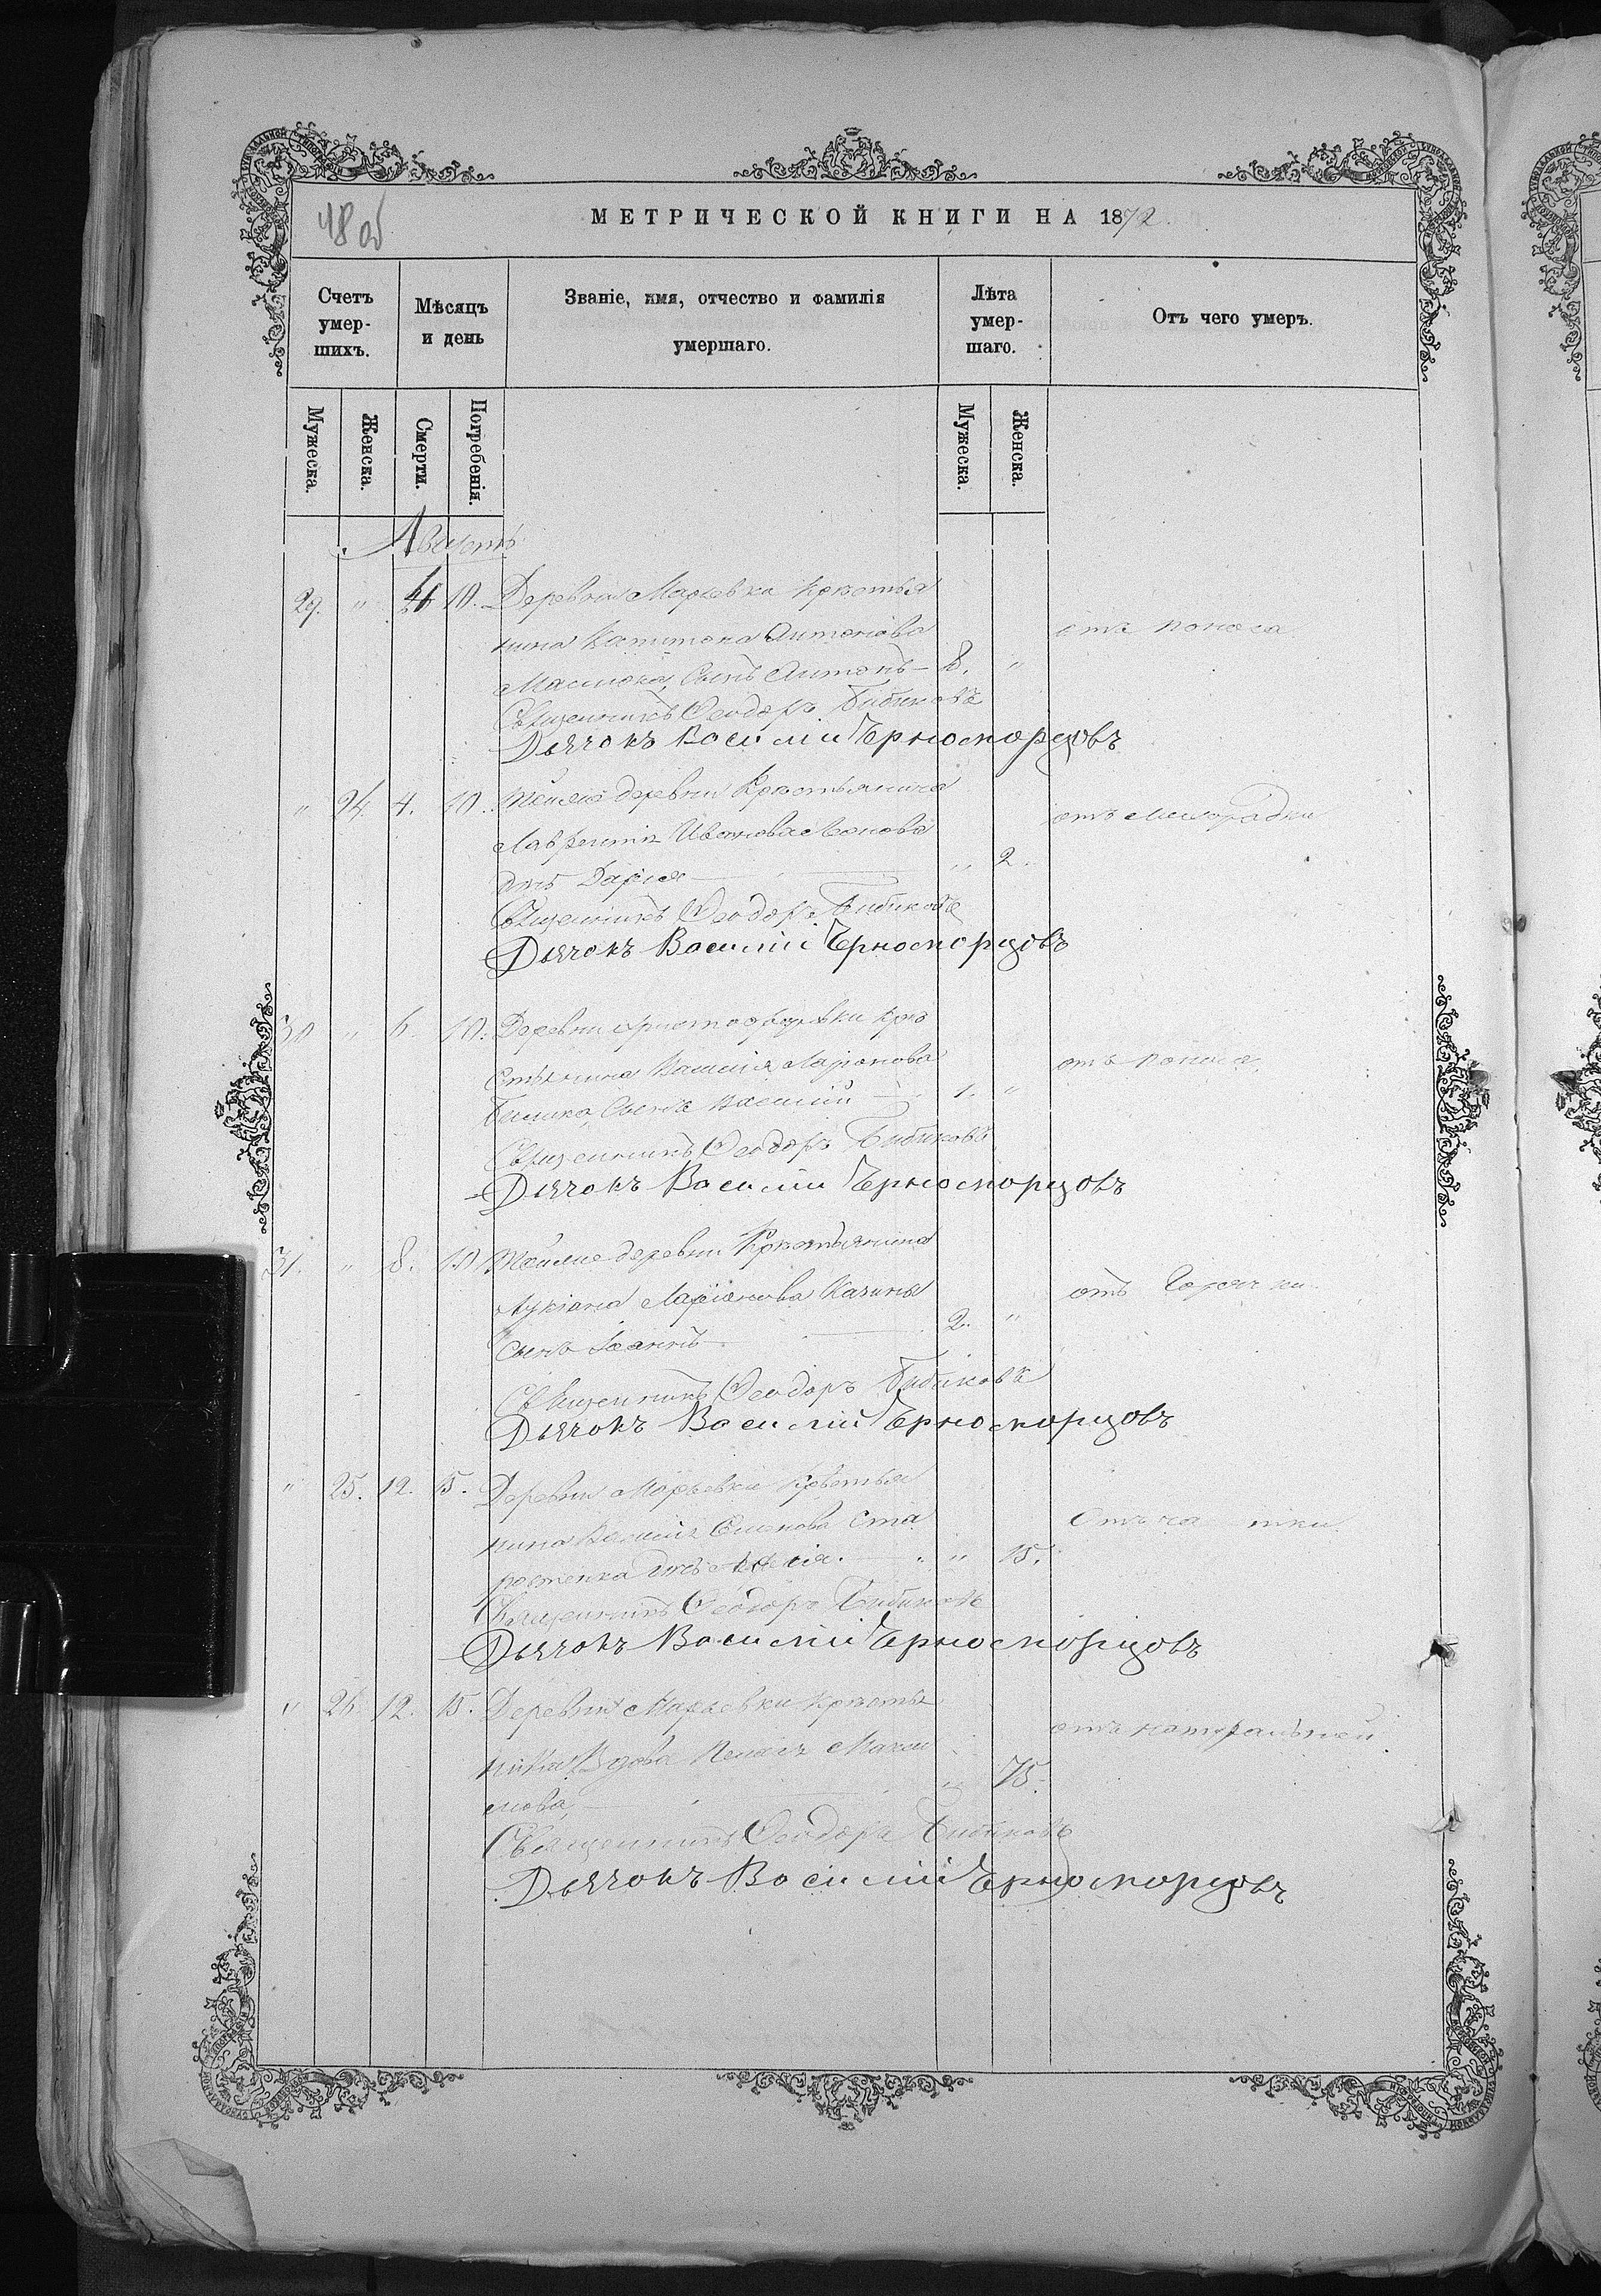 48 об
МЕТРИЧЕСКОЙ КНИГИ НА 1872.
Счетъ умер- шихъ.
Мѣсяцъ и день
Званіе, имя, отчество и фамилія умершаго.
Лѣта умер- шаго.
Отъ чего умеръ.
Мужеска.
Женска.
Смерти.
Погребенія.
Мужеска.
Женска.
Августъ
29. " 4 10. Деревни Марьевки Крестья
нина Капитона Антонова отъ поноса
сынъ Антонъ — 8. "
Священникъ Ѳеодоръ Бибиковъ
Дьячокъ Василій Черноморцовъ
" 24. 4. 10. Тойже деревни Крестьянина
Лаврентія Иванова отъ лихорадки
дчь Дарья " 2.
Священникъ Ѳеодоръ Бибиковъ
Дьячокъ Василій Черноморцовъ
30 " 6. 10. Деревни Кре
стьянина Василія Ларіонова отъ поноса
сынъ Василій — 1. "
Священникъ Ѳеодоръ Бибиковъ
Дьячокъ Василій Черноморцовъ
31. " 8. 10 Тойже деревни Крестьянина
Лукіана Ларіонова отъ Горячки
сынъ Іоаннъ 2. "
Священникъ Ѳеодоръ Бибиковъ
Дьячокъ Василій Черноморцовъ
" 25. 12. 15. Деревни Марьевки Крестья
нина Василія Семенова Ста Отъ чахотки
дчь " 15.
Священникъ Ѳеодоръ Бибиковъ
Дьячокъ Василій Черноморцовъ
" 26. 12. 15. Деревни Марьевки Крестья
Вдова отъ натуральной
мова " 75.
Священникъ Ѳеодоръ Бибиковъ
Дьячокъ Василій Черноморцовъ